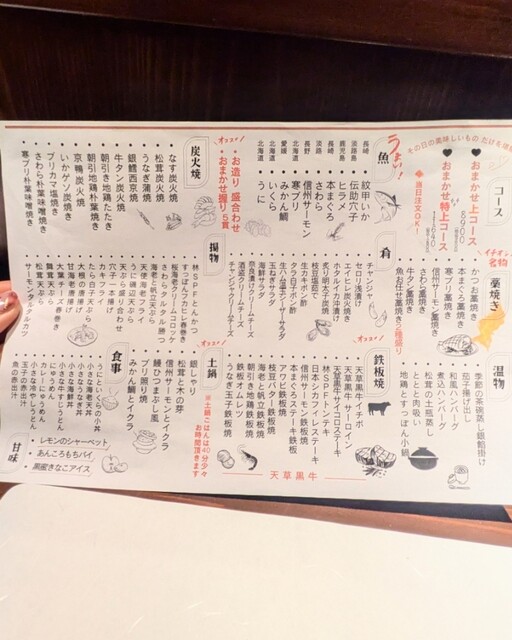 その日の美味しいもの
コース
おまかせ上コース
おまかせ特上コース
当日注文OK!
うまい!
魚
長崎 紋甲いか
淡路島 伝助穴子
鹿児島 ヒラメ
長崎 本まぐろ
淡路島 さわら
長野 信州サーモン
北海道 寒ブリ
愛媛 みかん鯛
北海道 いくら
北海道 うに
お造り盛合わせ
おまかせ握り5貫
炭火焼
なす炭火焼
松茸炭火焼
うなぎ蒲焼
銀鱈西京焼
牛タン炭火焼
朝引き地鶏たたき
朝引地鶏朴葉焼き
京鴨炭火焼
いかゲソ炭焼き
ブリカマ塩焼き
さわら朴葉味噌焼き
寒ブリ朴葉味噌焼き
イチオシ名物
藁焼き
かつお藁焼き
本まぐろ藁焼き
寒ブリ藁焼き
信州サーモン藁焼き
さわら藁焼き
牛タン藁焼き
魚お任せ藁焼き5種盛り
肴
チャンジャ
セロリ浅漬け
エイヒレ炭火焼き
ホタルイカ沖漬け
炙り明太子炭焼
枝豆塩茹で
クラゲポン酢
生カキポン酢
生ハムサーモンサラダ
玉ねぎサラダ
海鮮サラダ
奈良漬けクリームチーズ
酒盗クリームチーズ
チャンジャクリームチーズ
揚物
林SPFとんかつ
すっぽんコラーゲンカレー春巻き
桜海老クリームコロッケ
さわらタルタル勝つ
海老と帆立天ぷら
天使の海老フライ
うに磯辺天ぷら
天ぷら盛り合わせ
穴子一本揚げ
カキフライ
たら白子天ぷら
大根の唐揚げ
甘海老唐揚げ
大葉チーズ春巻き
舞茸天ぷら
松茸天ぷら
サーモンタルタルカツ
温物
季節の茶碗蒸し銀餡掛け
玉子揚げ出し
和風ハンバーグ
煮込ハンバーグ
松茸の土瓶蒸し
とと肉吸い
地鶏とすっぽん小鍋
鉄板焼
天草黒牛イチボ
天草黒牛サーロイン
天草黒牛サイコロステーキ
林SPFトンテキ
日本シカフィレステーキ
信州サーモン鉄板焼
本まぐろステーキ鉄板
アワビ鉄板焼
枝豆バター鉄板焼
朝引き地鶏鉄板焼
海老と帆立鉄板焼
鉄板オムレツ
うなぎ玉子鉄板焼
天草黒牛
土鍋
※土鍋ごはんは40分少々
お時間頂きます
銀しゃり
松茸と木の芽
信州サーモンとイクラ
鰻ひつまぶし風
ブリ照り焼
みかん鯛とイクラ
食事
うにといくら小丼
小さな海老天丼
小さなうなぎ丼
小さな牛すじ丼
小さな海鮮丼
にゅうめん
カレーにゅうめん
小さな冷やしうどん
玉子の赤出汁
魚の赤出汁
甘味
レモンのシャーベット
あんころもちパイ
黒蜜きなこアイス